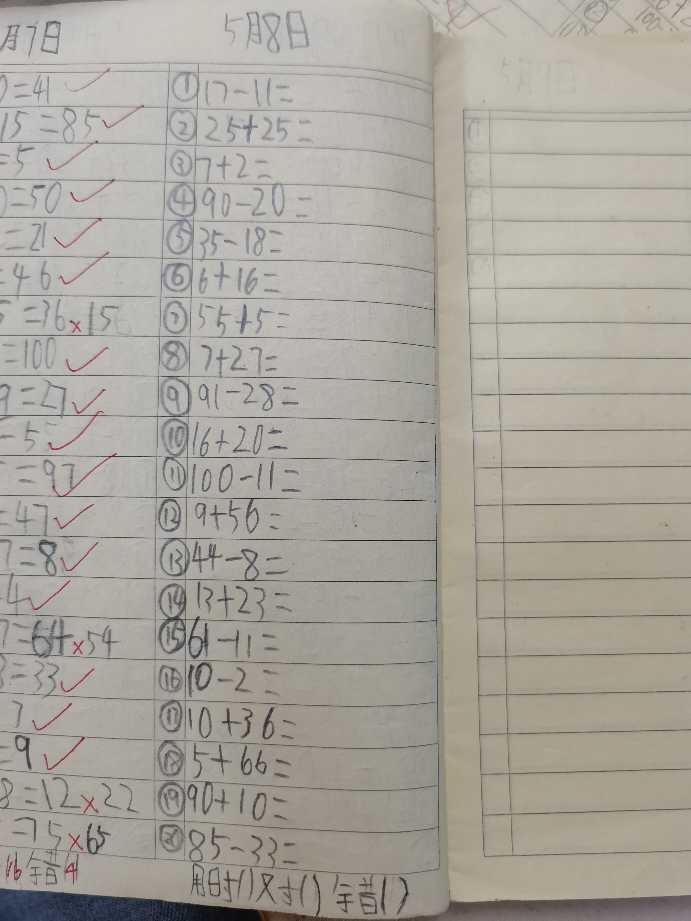 月7日
5月8日
0=41
15=85
=5
0=50
=21
=46
5=36×15
=100
9=27
=5
=97
=47
7=8
4
7=64×54
3=33
7
=9
8=12×22
=75×65
16 错4
①17-11=
②25+25=
③7+2=
④90-20=
⑤35-18=
⑥6+16=
⑦55+5=
⑧7+27=
⑨91-28=
⑩16+20=
⑪100-11=
⑫9+56=
⑬44-8=
⑭13+23=
⑮61-11=
⑯10-2=
⑰10+36=
⑱5+66=
⑲90+10=
⑳85-33=
用时()对()错()